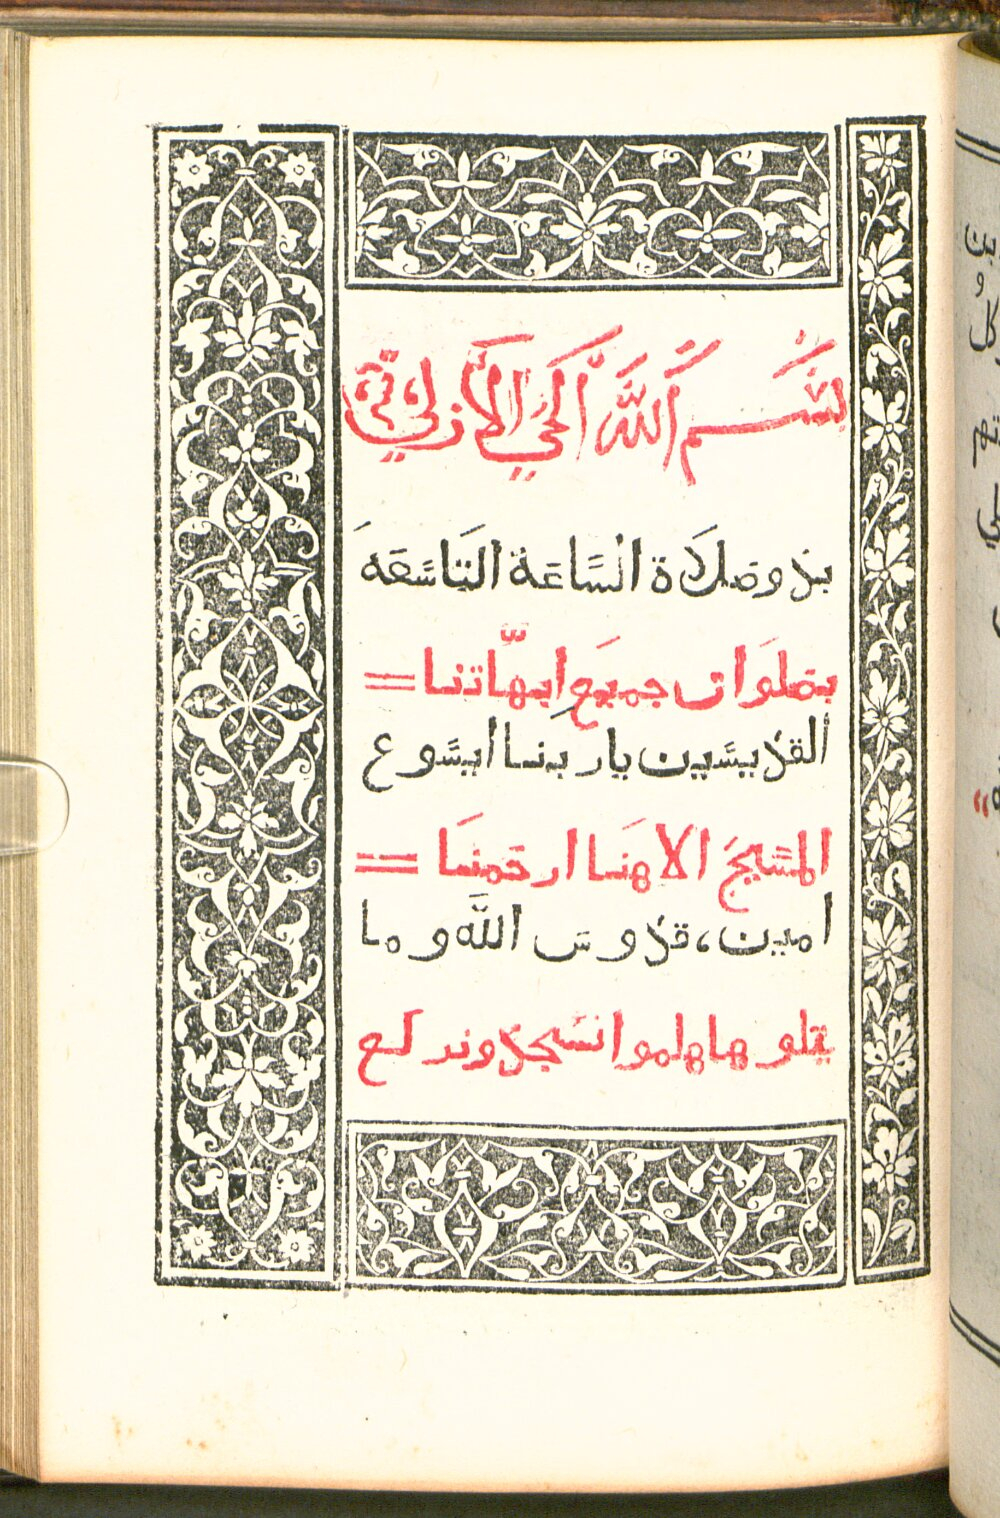 بِسْمِ اَللَّهِ اَلحَيِّ اَلأَزَلِي
بدو صلاَة السَّاعَة التاسَعَة
بصلوات جميع ابهَّاتنا =
القديسَين يا ربنا ايسَوع
المسَيحَ الاهنَا ارحَمنَا =
امين، قدوسَ اللَّه وما
يتلوها هلموا نسَجد ونركع